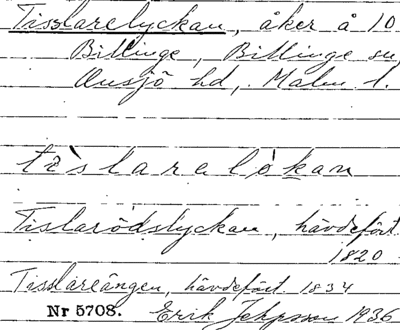 Tisslarelyckan, åker å 10
Billinge, Billinge sn,
Onsjö hd, Malm l.
tìslarelòkan
Tislarödslyckan, hävdefört
1820
Tisslareängen, hävdefört 1834
Nr 5708. Erik Jeppsson 1936